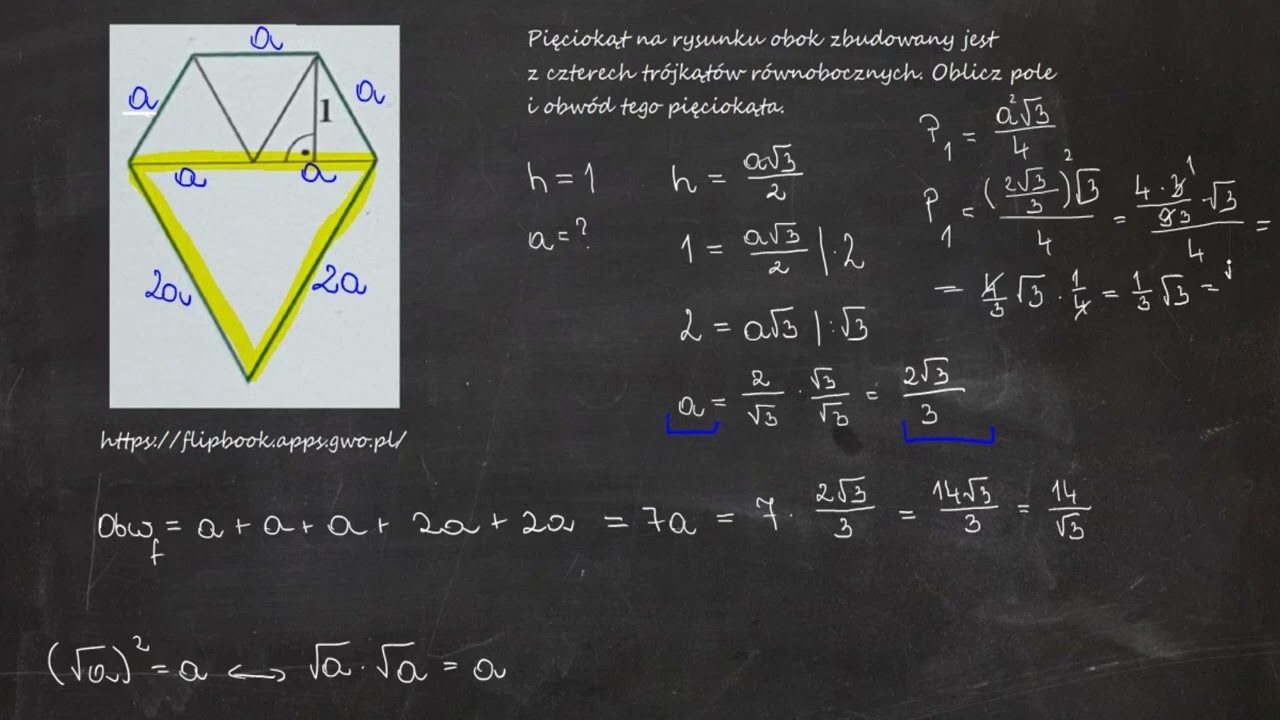 a
a
a
1
a
a
2a
2a
https://flipbook.apps.gwo.pl/
Pięciokąt na rysunku obok zbudowany jest
z czterech trójkątów równobocznych. Oblicz pole
i obwód tego pięciokąta.
h = 1
a = ?
h = a√3/2
1 = a√3/2 |·2
2 = a√3 |:√3
a = 2/√3 · √3/√3 = 2√3/3
P₁ = a²√3/4
P₁ = (2√3/3)²√3/4 = 4·3 1/9 3 ·√3/4 =
= 4/3 √3 · 1/4 = 1/3 √3 =
Obw_f = a + a + a + 2a + 2a = 7a = 7 · 2√3/3 = 14√3/3 = 14/√3
(√a)² = a ⟷ √a · √a = a